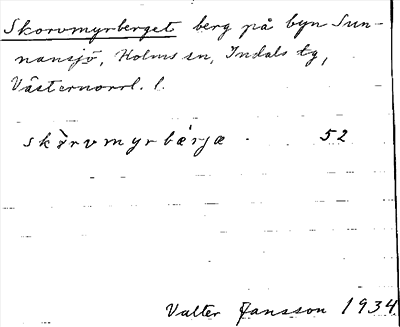 Skorvmyrberget berg på byn Sun-
nansjö, Holms sn, Indals tg,
Västernorrl. l.
skòrvmyrbæ̀rjæ . 52
Valter Jansson 1934